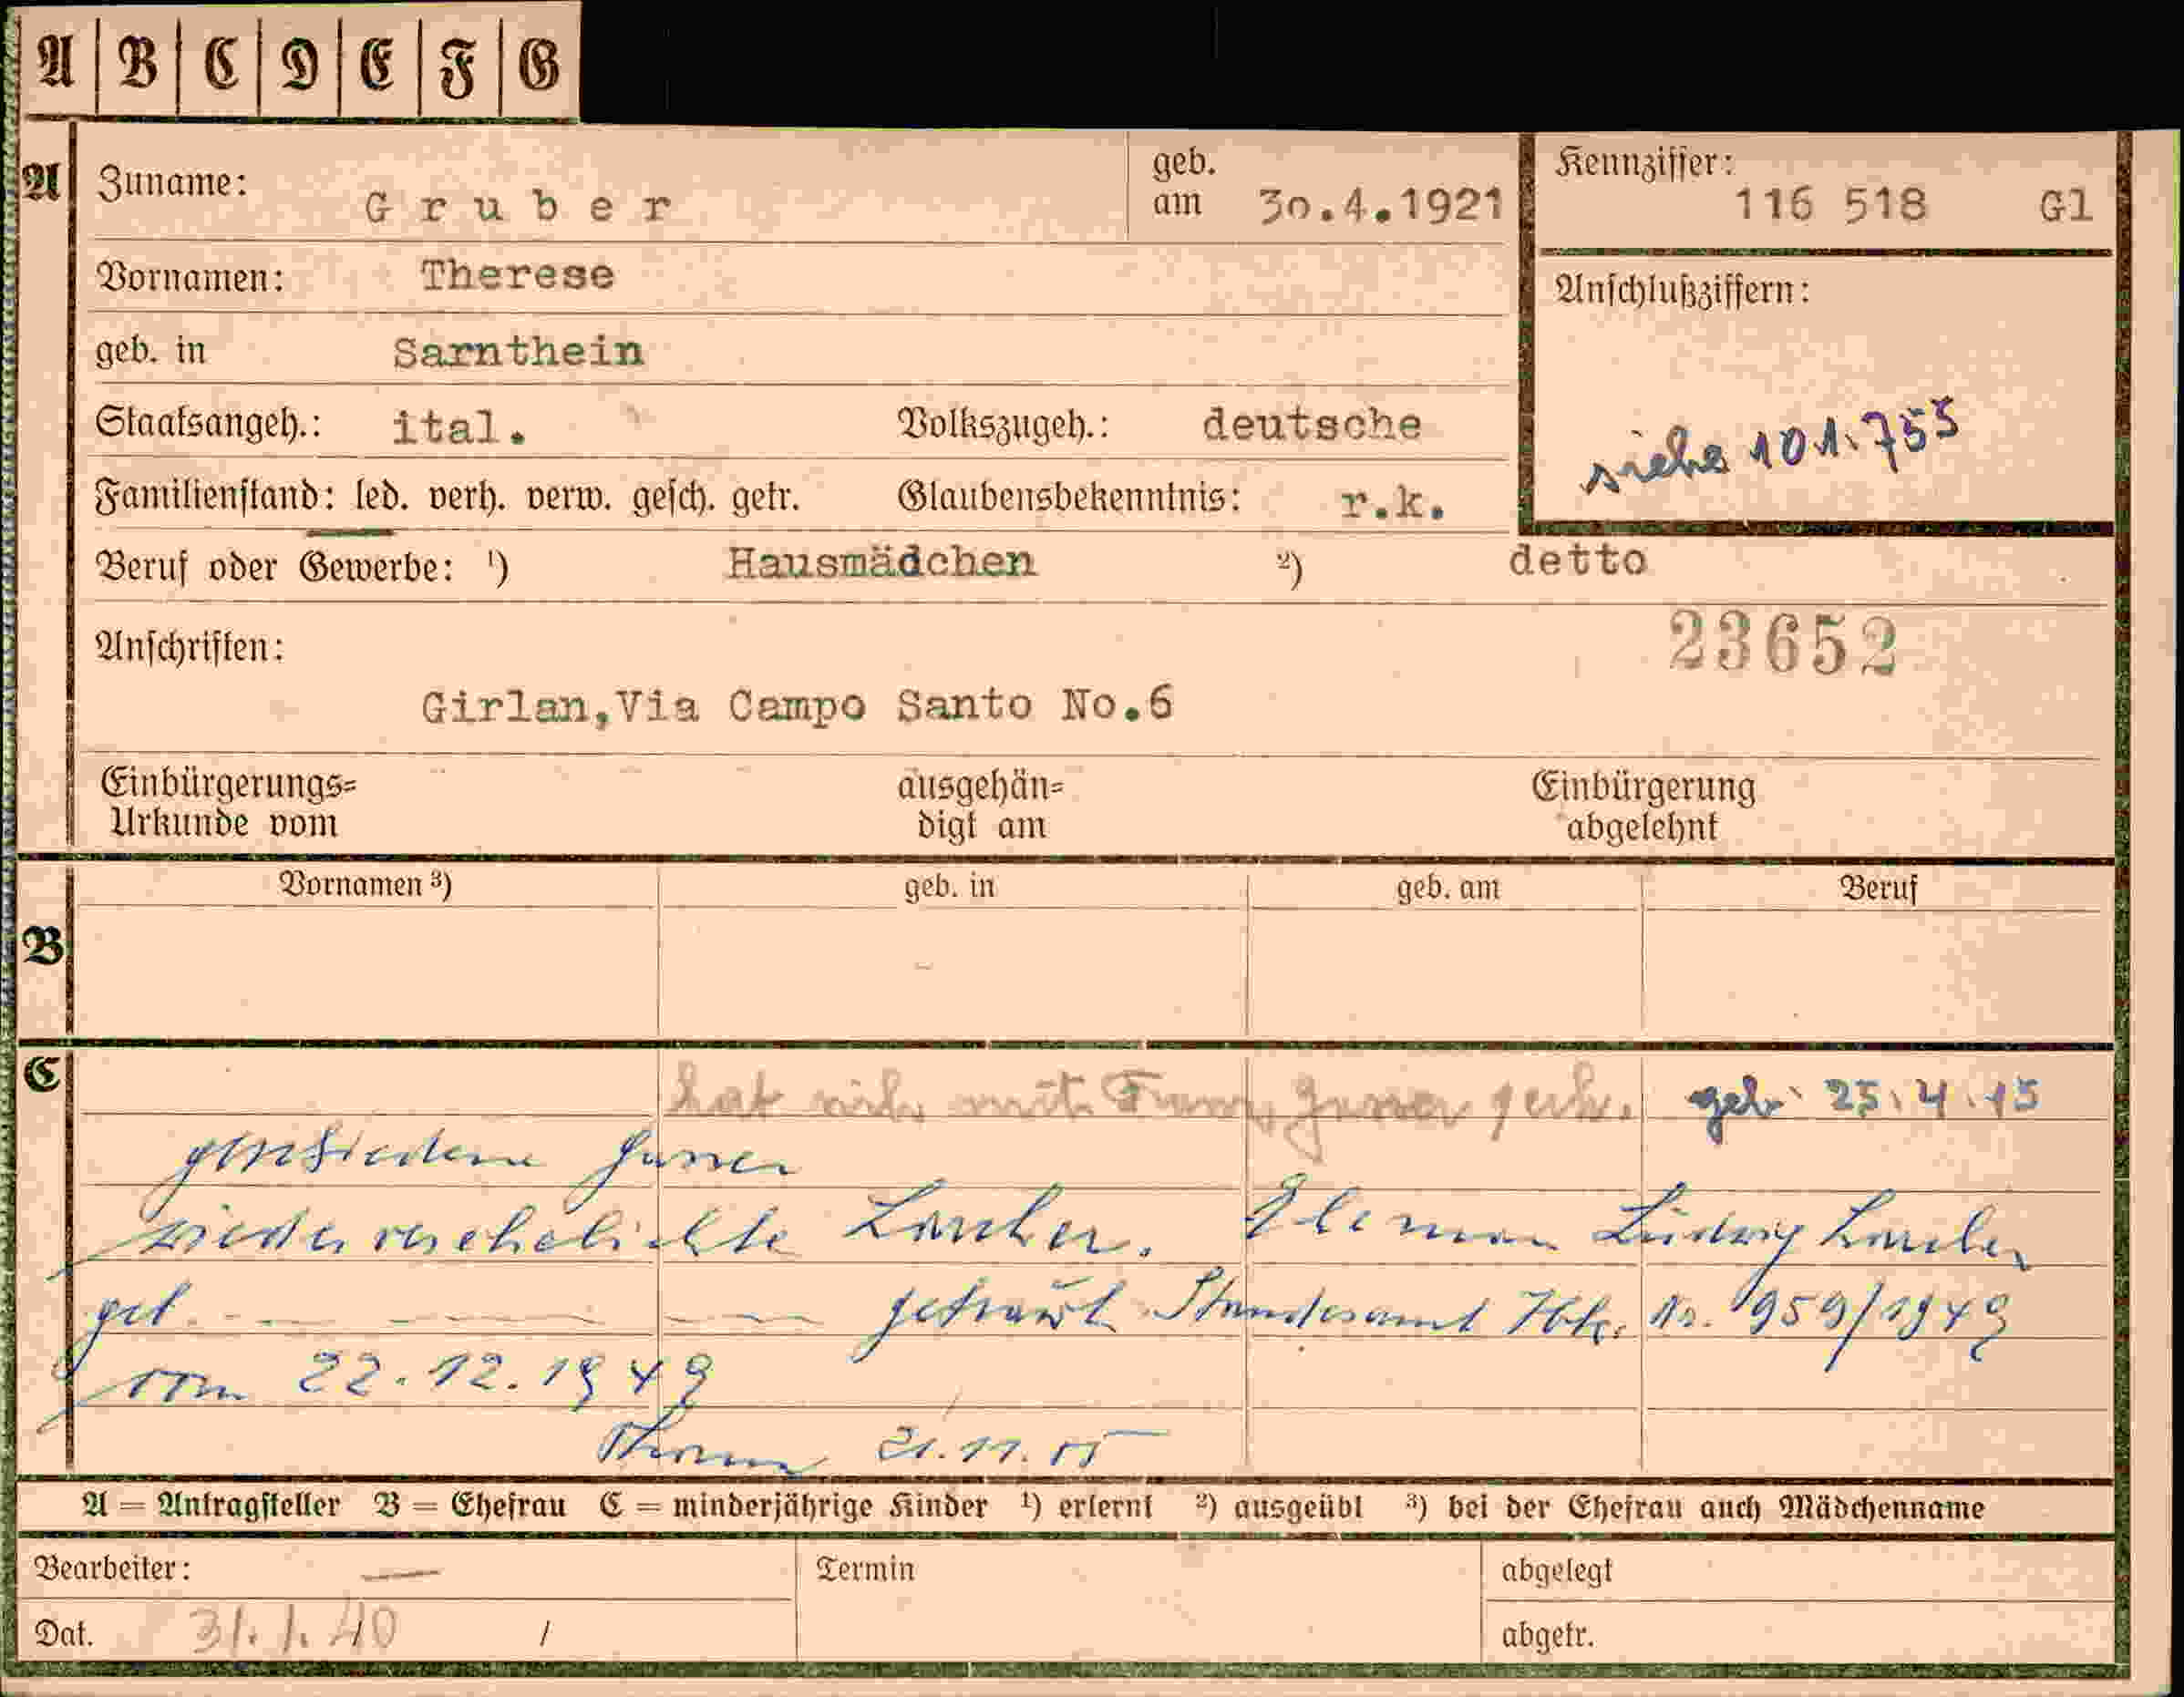 A B C D E F G
A Zuname: Gruber geb. am 30.4.1921 Kennziffer: 116 518 Gl
Vornamen: Therese Anschlußziffern:
geb. in Sarnthein
Staatsangeh.: ital. Volkszugeh.: deutsche siehe 101.755
Familienstand: led. verh. verw. gesch. getr. Glaubensbekenntnis: r.k.
Beruf oder Gewerbe: ¹) Hausmädchen ²) detto
Anschriften: 23652
Girlan, Via Campo Santo No.6
Einbürgerungs= ausgehän= Einbürgerung
Urkunde vom digt am abgelehnt
Vornamen ³) geb. in geb. am Beruf
B
C hat sich mit Franz gesch. geb. 25.4.15
geschiedene
wiederverehelichte Larcher. Eheman Ludwig Larcher
geb. getraut Standesamt Nr. 959/1949
vom 22.12.1949
21.11.55
A = Antragsteller B = Ehefrau C = minderjährige Kinder ¹) erlernt ²) ausgeübt ³) bei der Ehefrau auch Mädchenname
Bearbeiter: — Termin abgelegt
Dat. 31.1.40 / abgetr.